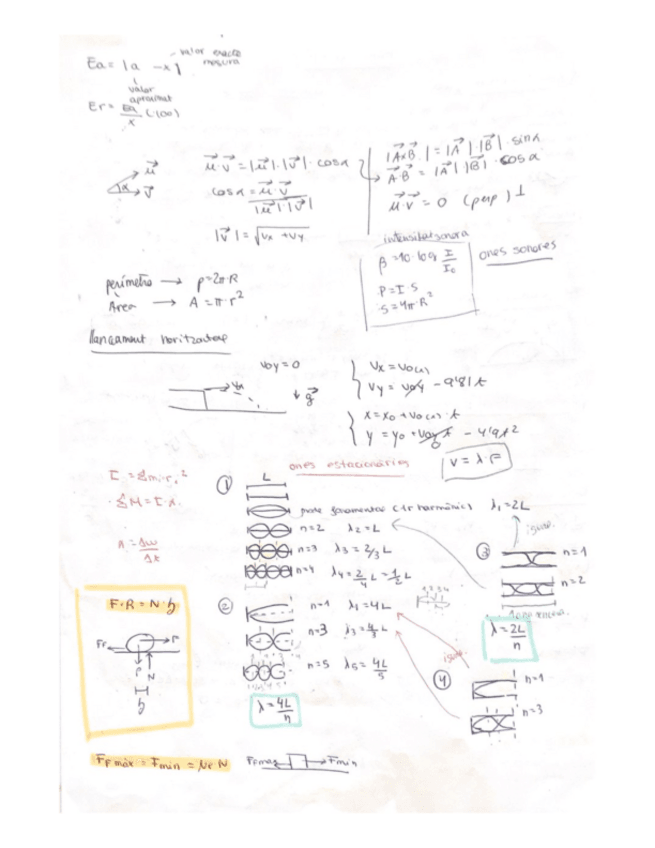 Ea = |a - x|
valor exacte
mesura
valor
aproximat
Er = Ea/x (·100)
α
u⃗
v⃗
u⃗·v⃗ = |u⃗|·|v⃗|·cosα
cosα = u⃗·v⃗ / |u⃗|·|v⃗|
|v⃗| = √vx + vy
|A⃗xB⃗| = |A⃗|·|B⃗|·sinα
A⃗·B⃗ = |A⃗||B⃗|·cosα
u⃗·v⃗ = 0 (perp) ⊥
intensitat sonora
β = 10·log I/I₀
P = I·S
S = 4π·R²
ones sonores
perímetre → p = 2π·R
Àrea → A = π·r²
llançament horitzontal
voy = 0
vx
g⃗
vx = vo(x)
vy = voy - 9'81 t
x = x₀ + vo(x)·t
y = y₀ + voy t - 4'9 t²
v = λ·F
ones estacionàries
I = Σmi·ri²
ΣM = I·α
α = Δω/Δt
① L
mode fonamental (1r harmònic) λ₁ = 2L
n=2 λ₂ = L
n=3 λ₃ = 2/3 L
n=4 λ₄ = 2/4 L = 1/2 L
igual
③ n=1
n=2
λ = 2L/n
② n=1 λ₁ = 4L
n=3 λ₃ = 4/3 L
n=5 λ₅ = 4L/5
λ = 4L/n
igual
④ n=1
n=3
F·R = N·b
Fr
F
P
N
b
FFmàx = Fmin = μe N
FFmàx
Fmin